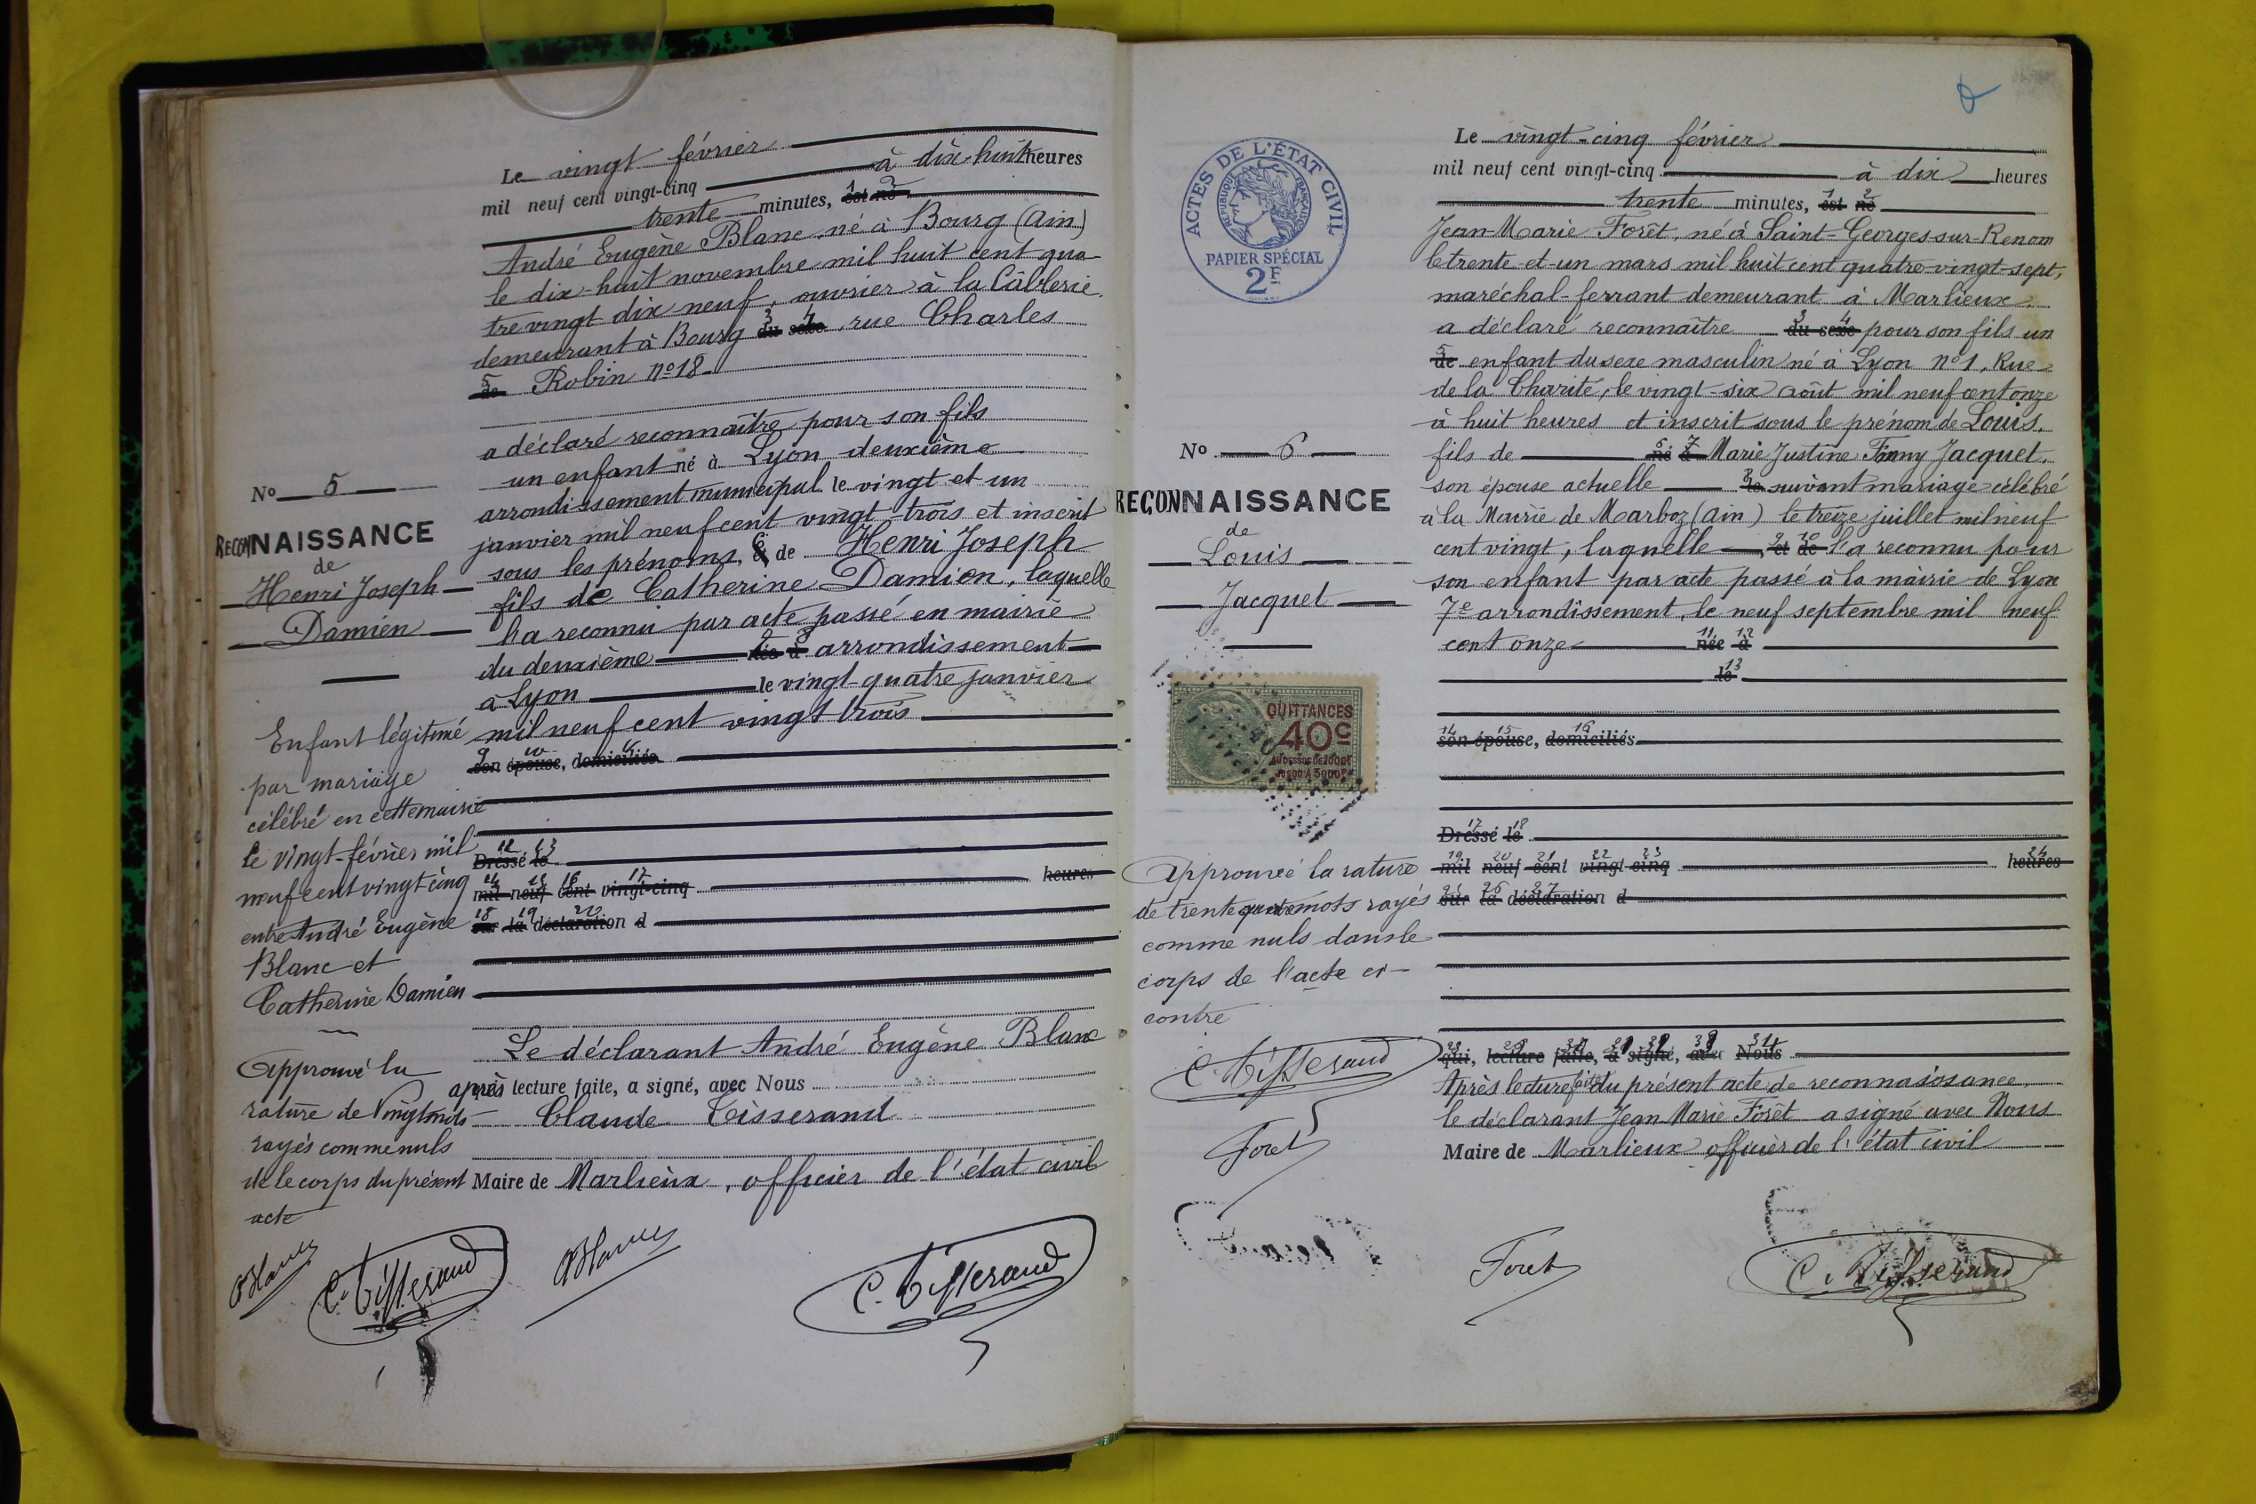 Le vingt février
mil neuf cent vingt-cinq à dix-huit heures
trente minutes, est né
André Eugène Blanc, né à Bourg (Ain)
le dix-huit novembre mil huit cent qua-
tre vingt dix neuf, ouvrier à la Câblerie
demeurant à Bourg du sexe rue Charles
de Robin N° 18
a déclaré reconnaître pour son fils
un enfant né à Lyon deuxième
arrondissement municipal le vingt et un
janvier mil neuf cent vingt-trois et inscrit
sous les prénoms, de Henri Joseph
fils de Catherine Damien, laquelle
l'a reconnu par acte passé en mairie
du deuxième née à arrondissement
à Lyon le vingt-quatre janvier
mil neuf cent vingt trois
son épouse, domiciliés
Dressé le
mil neuf cent vingt-cinq heures
sur la déclaration d
Le déclarant André Eugène Blanc
après lecture faite, a signé, avec Nous
Claude Tisserand
Maire de Marlieux, officier de l'état civil
N° 5
RECONNAISSANCE
de
Henri Joseph
Damien
Enfant légitimé
par mariage
célébré en cette mairie
le vingt-février mil
neuf cent vingt cinq
entre André Eugène
Blanc et
Catherine Damien
Approuvé la
rature de vingt mots
rayés comme nuls
de le corps du présent
acte
Blanc
C. Tisserand
Blanc
C. Tisserand
ACTES DE L'ÉTAT CIVIL
RÉPUBLIQUE FRANÇAISE
PAPIER SPÉCIAL
2F
N° 6
RECONNAISSANCE
de
Louis
Jacquet
QUITTANCES
40c
AU DESSUS DE 1000F
JUSQU'A 3000F
Approuvé la rature
de trente quatre mots rayés
comme nuls dans le
corps de l'acte ci-
contre
C. Tisserand
Foret
Le vingt-cinq février
mil neuf cent vingt-cinq à dix heures
trente minutes, est né
Jean-Marie Forêt, né à Saint-Georges-sur-Renom
le trente-et-un mars mil huit cent quatre-vingt-sept,
maréchal-ferrant demeurant à Marlieux
a déclaré reconnaître du sexe pour son fils un
de enfant du sexe masculin né à Lyon n° 1, Rue
de la Charité, le vingt-six août mil neuf cent onze
à huit heures et inscrit sous le prénom de Louis,
fils de né à Marie Justine Fanny Jacquet,
son épouse actuelle le suivant mariage célébré
à la Mairie de Marboz (Ain) le treize juillet mil neuf
cent vingt, laquelle et de l'a reconnu pour
son enfant par acte passé à la mairie de Lyon
7e arrondissement, le neuf septembre mil neuf
cent onze née à
le
son épouse, domiciliés
Dressé le
mil neuf cent vingt-cinq heures
sur la déclaration d
qui, lecture faite, a signé, avec Nous
Après lecture faite du présent acte de reconnaissance,
le déclarant Jean Marie Forêt a signé avec Nous
Maire de Marlieux officier de l'état civil
Foret
C. Tisserand